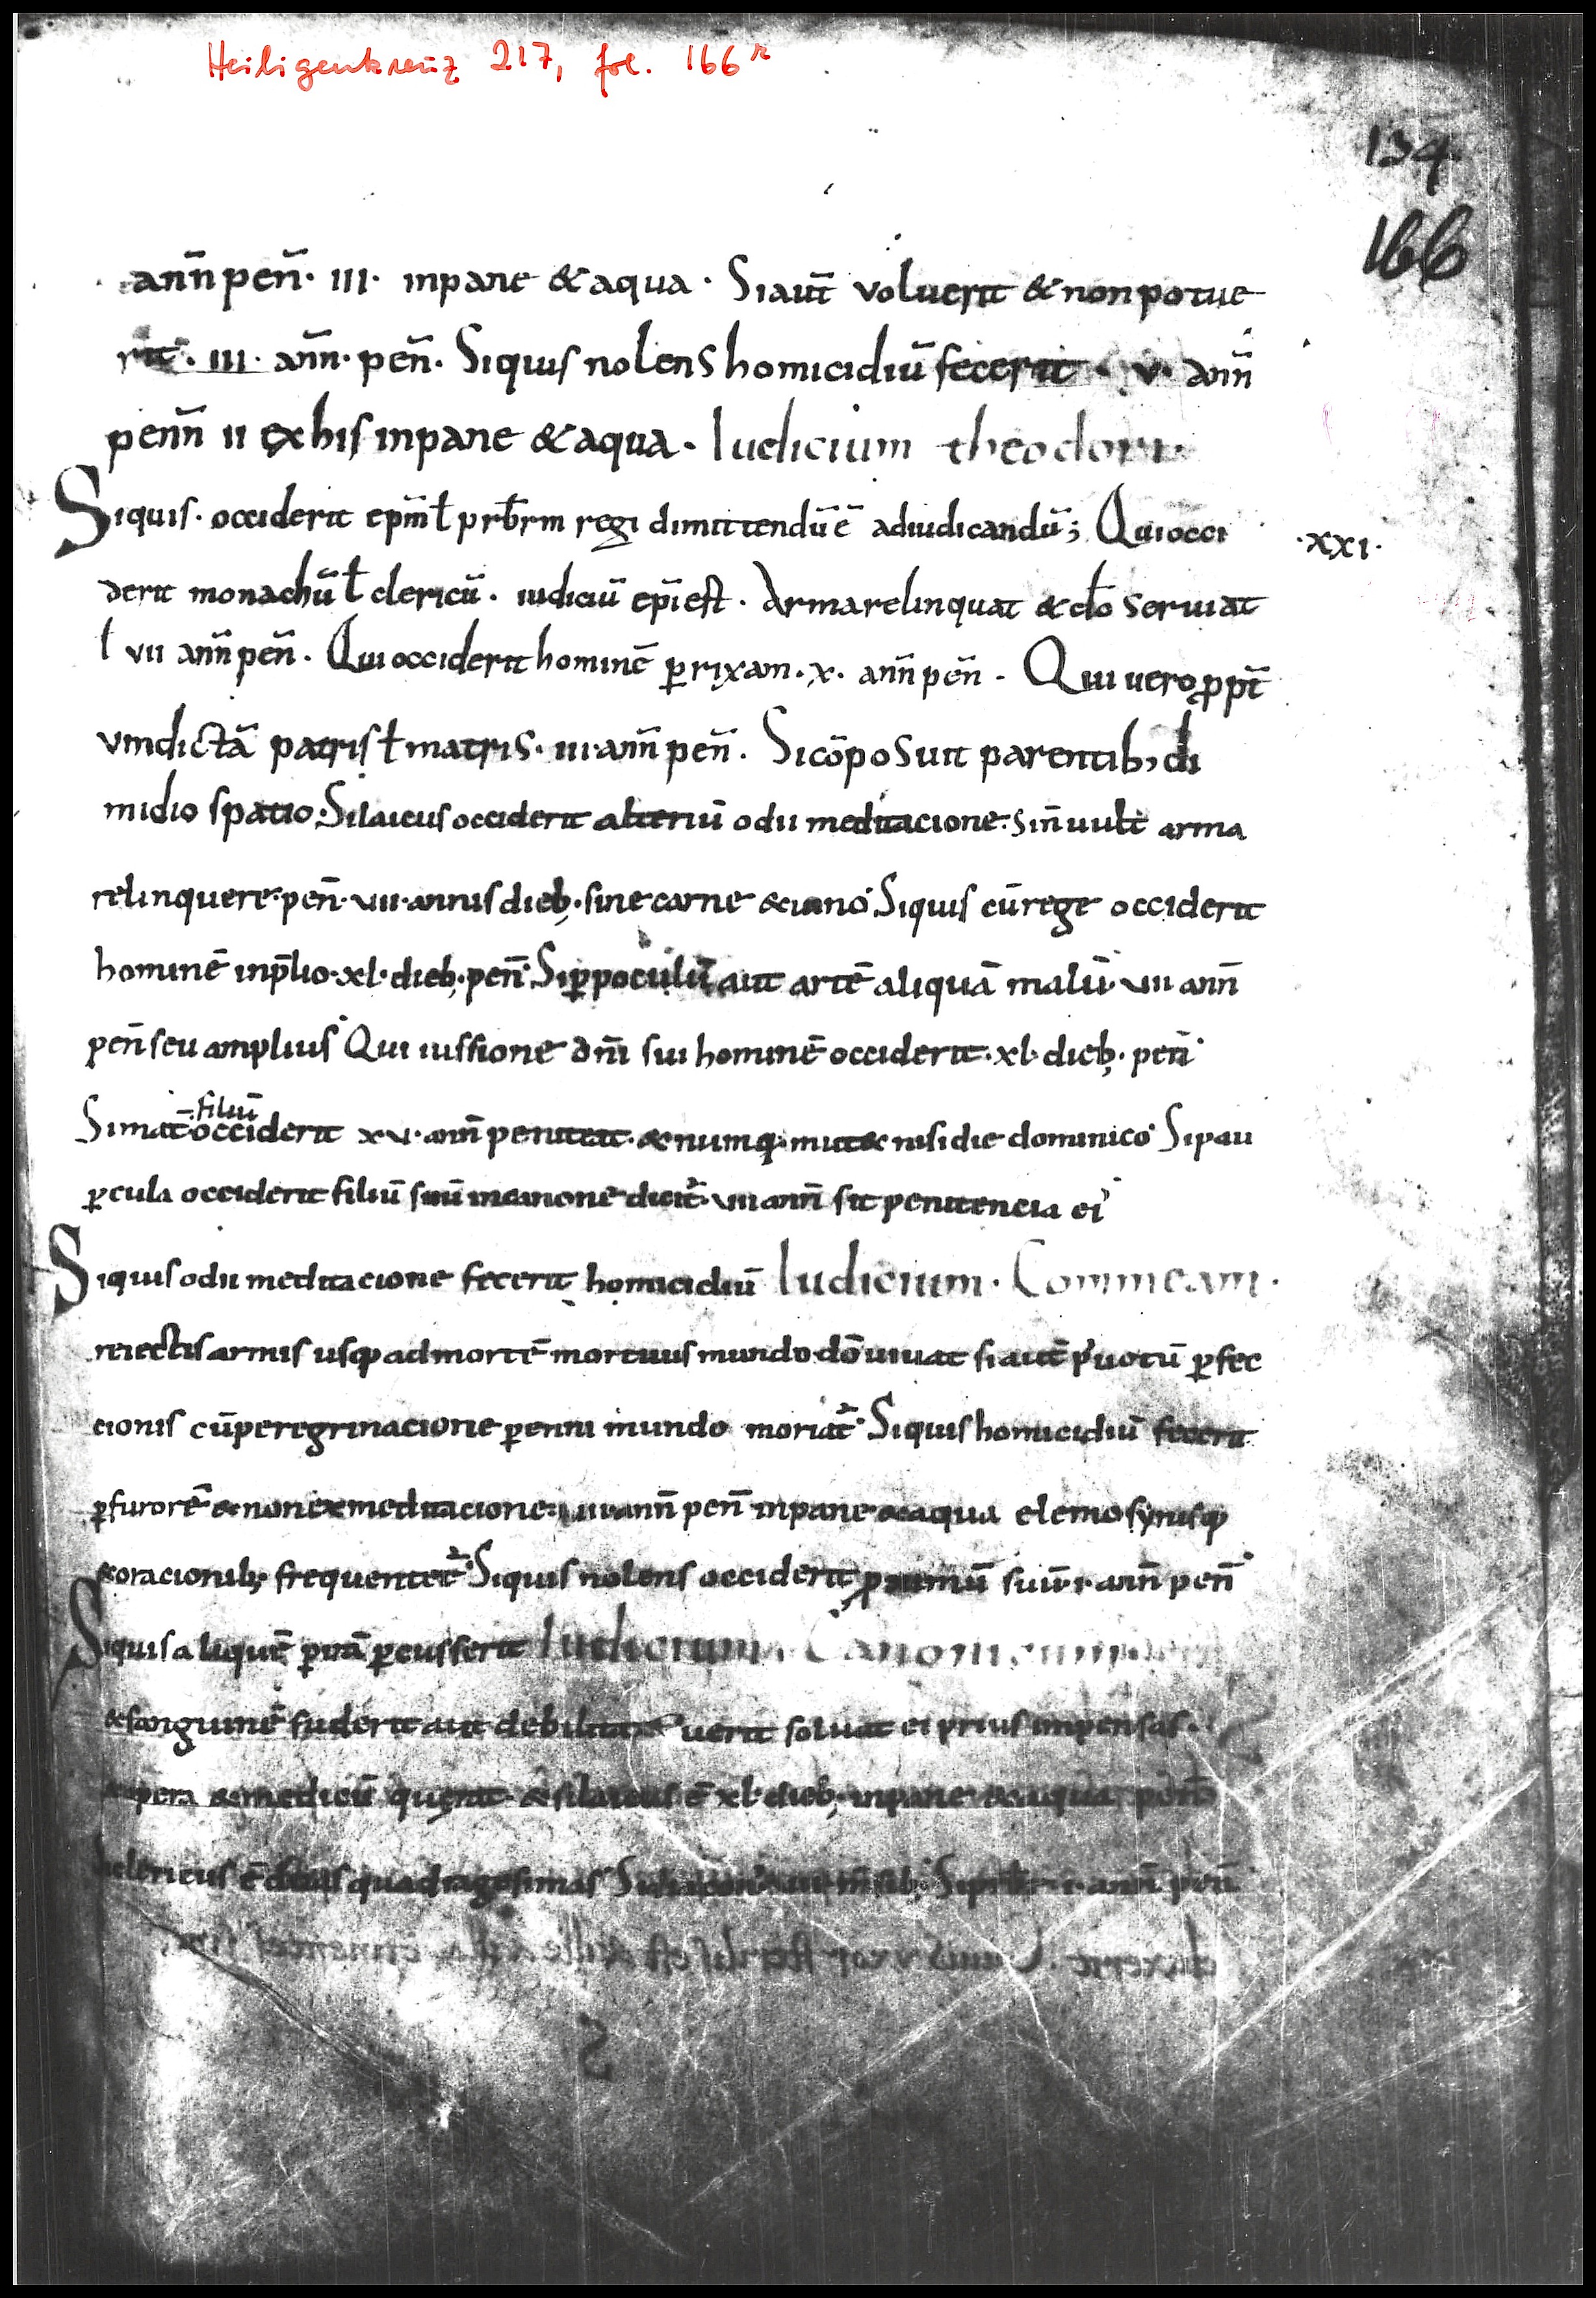 Heiligenkreuz 217, fol. 166r
134
166
ann̄ pen̄· III· inpane & aqua · Siaut̄ voluerit & non potue
rit · III · ann̄· pen̄· Siquis nolens homicidiū fecerit · v· ann̄
penn̄ II ex his inpane & aqua · Iudicium theodori
Siquis· occiderit epm̄ ł prb̄rm regi dimittendū ē adiudicandū; Qui occi
·XXI·
derit monachū ł clericū · iudiciū ep̄i est · Arma relinquat & do̅ seruiat
ł VII ann̄ pen̄ · Qui occiderit hominē ꝑ rixam · x · ann̄ pen̄ · Qui uero ꝓpt̄
vindictā patris ł matris · III · ann̄ pen̄ · Si cōposuit parentib; di
midio spatio· Silaicus occiderit alteriū odii meditacione· sin̄ uult arma
relinquere· pen̄· VII· annis dieb;· sine carne & uino· Siquis cū rege occiderit
hominē inp̄lio· xl· dieb;· pen̄· Siꝑ poculū aut artē aliquā malū· VII ann̄
pen̄ seu amplius· Qui iussione dn̄i sui hominē occiderit· xl· dieb;· pen̄·
filiū
Simat̄ occiderit xv· ann̄ peniteat· & numq· mut& nisi die dominico· Sipau
ꝑcula occiderit filiū suū incanone dicit̄· VII ann̄ sit penitencia ei·
Siquis odii meditacione fecerit homicidiū Iudicium · Commeani ·
reiectis armis usq; ad mortē mortuus mundo dō uiuat si aut̄ p' uotū ꝑfec
cionis cū peregrinacione ꝑenni mundo moriat̄· Siquis homicidiū fecerit
ꝑ furorē & non ex meditacione· III ann̄ pen̄ inpane & aqua elemosynisq;
& oracionib; frequentet̄· Siquis nolens occiderit ꝓximū suū· I· ann̄ pen̄·
Siquis aliquē ꝑ irā ꝑcusserit Iudicium
& sanguinē fuderit aut debilitauerit soluat ei prius inpensas·
& medicū querat· & silaicus ē xl· dieb; inpane & aqua pen̄
clericus ē duas quadragesimas I· ann̄ pen̄